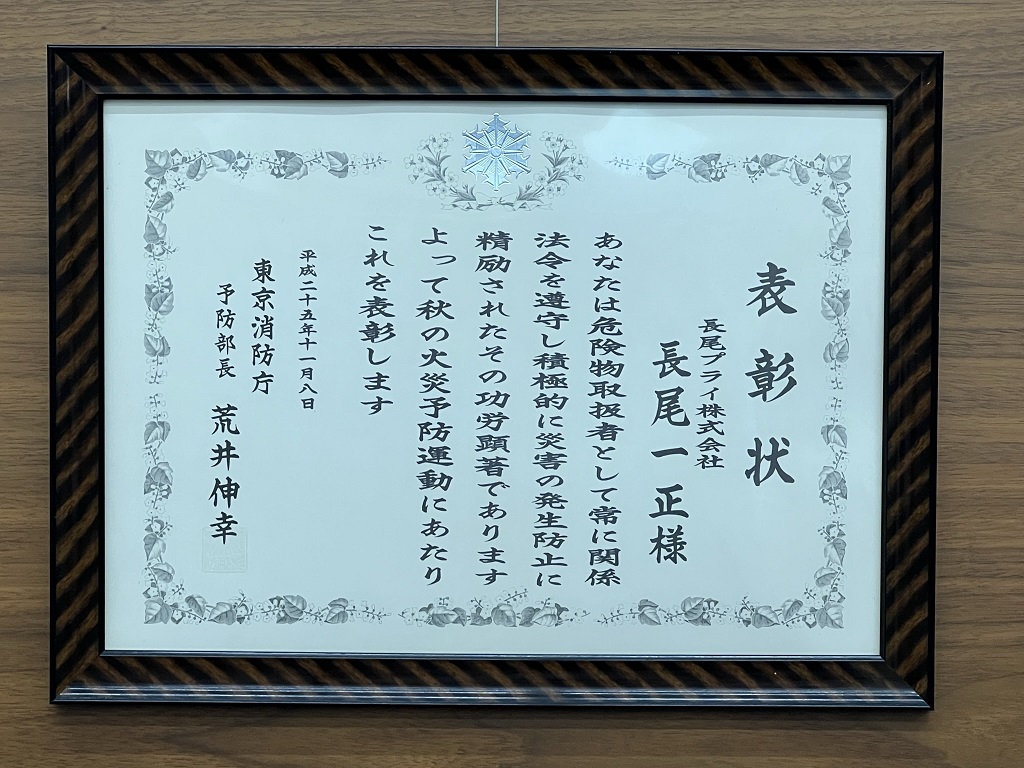 表彰状
長尾プライ株式会社
長尾一正様
あなたは危険物取扱者として常に関係
法令を遵守し積極的に災害の発生防止に
精励されたその功労顕著であります
よって秋の火災予防運動にあたり
これを表彰します
平成二十五年十一月八日
東京消防庁
予防部長 荒井伸幸